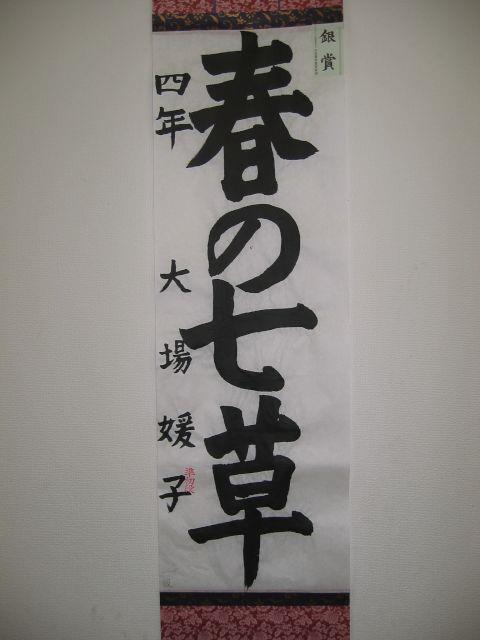 銀賞
春の七草
四年 大場媛子
準初段